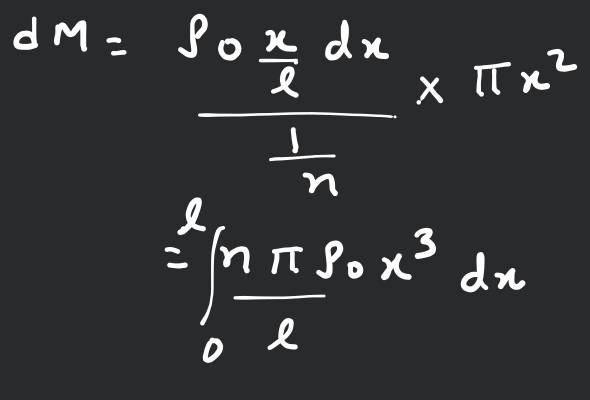 dM = (ρ₀ x/l dx)/(1/n) × πx²
= ∫₀ˡ (nπρ₀)/l x³ dx